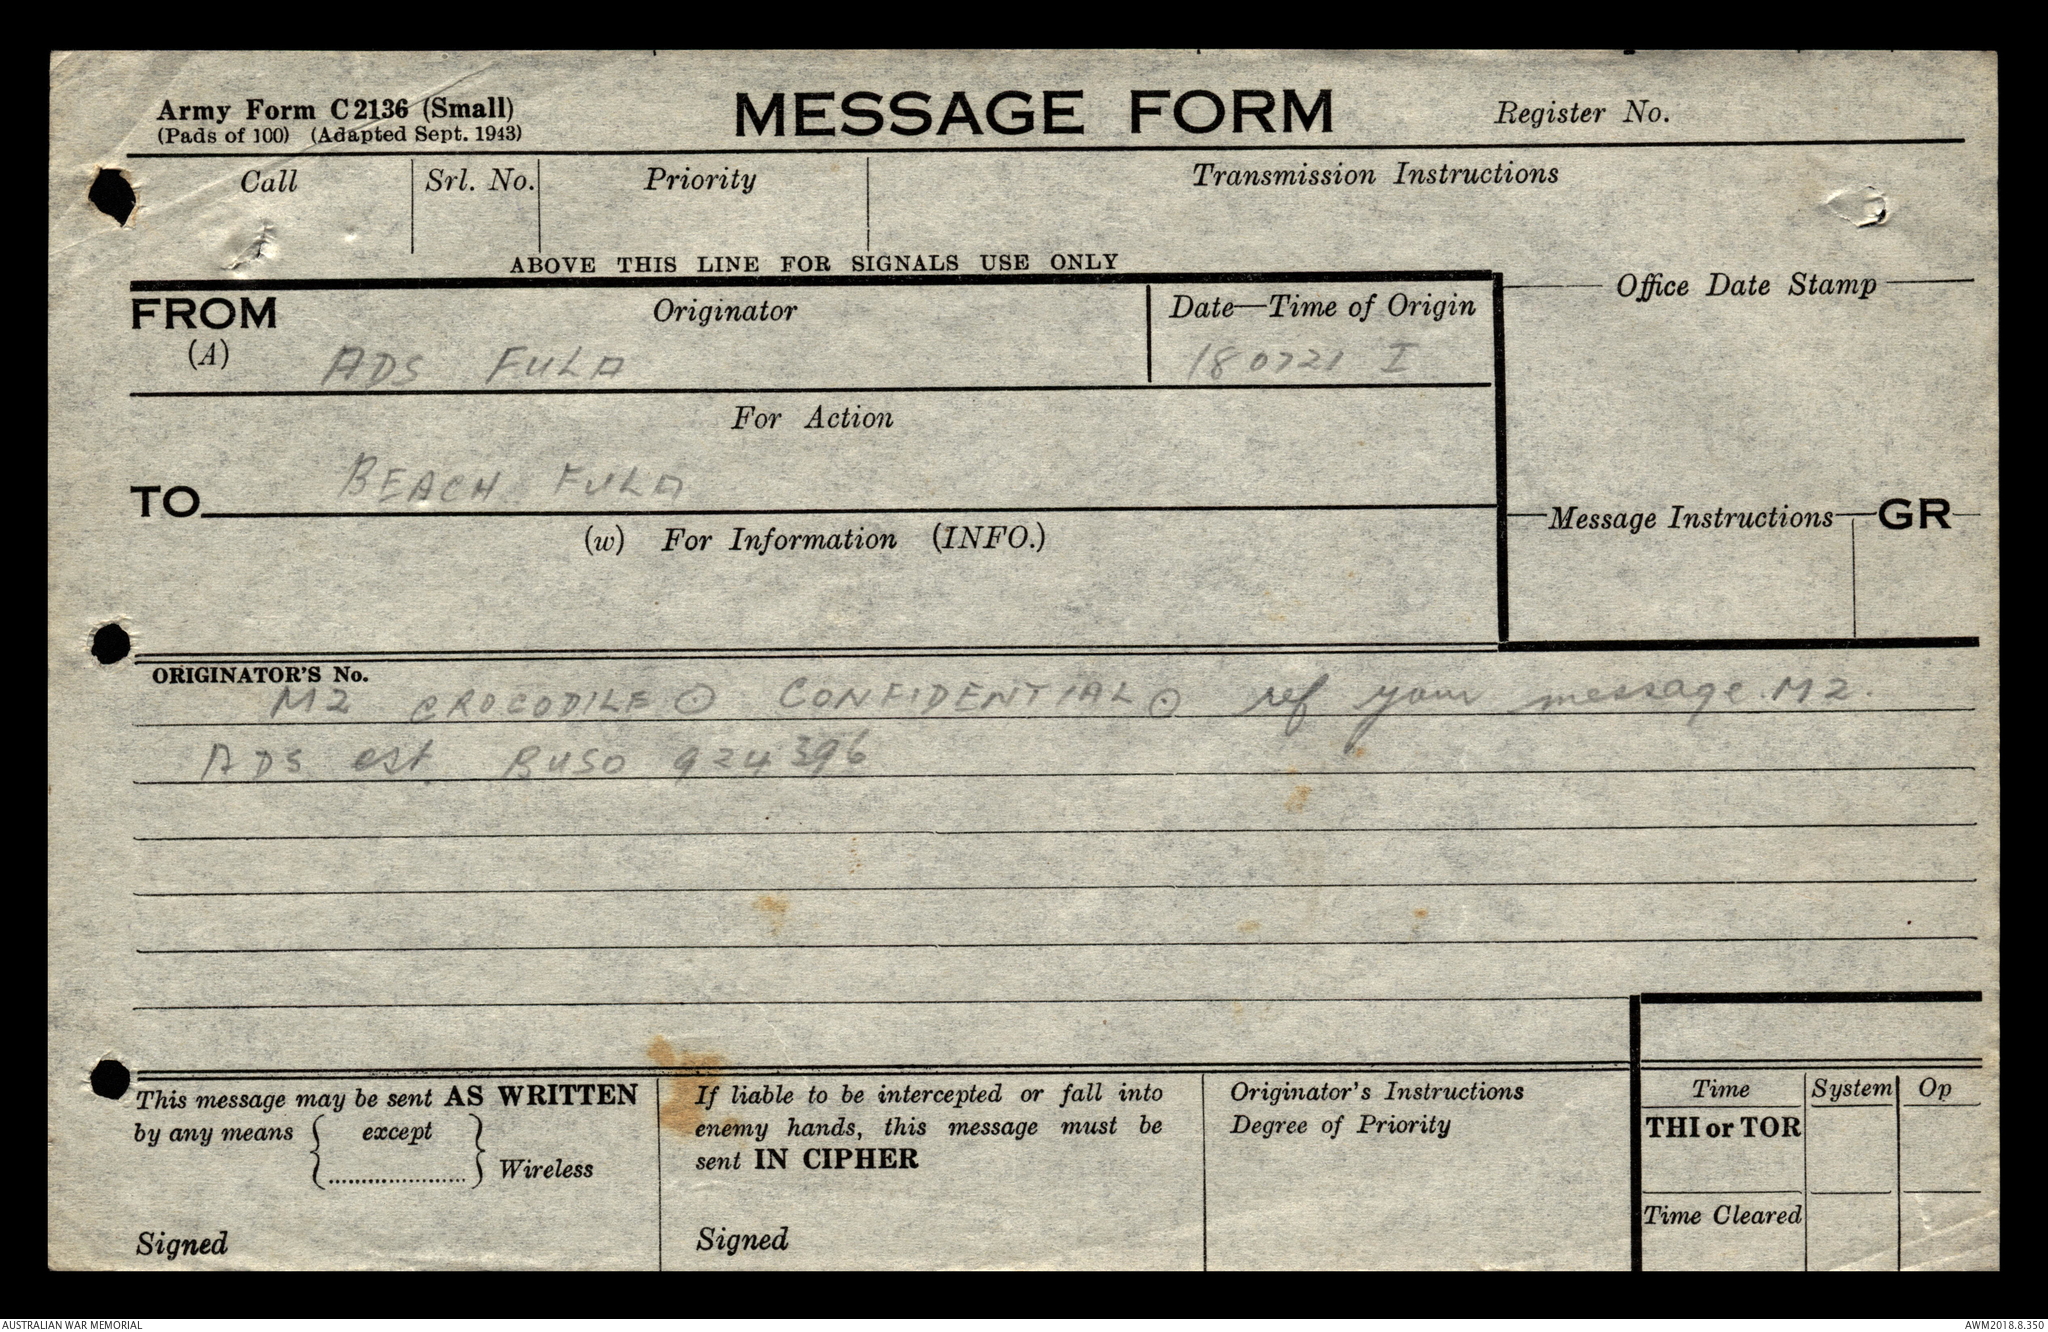 Army Form C2136 (Small)
(Pads of 100) (Adapted Sept. 1943)
MESSAGE FORM
Register No.
Call
Srl. No.
Priority
Transmission Instructions
ABOVE THIS LINE FOR SIGNALS USE ONLY
FROM
(A)
Originator
Date—Time of Origin
Office Date Stamp
ADS FULA
180721 I
For Action
TO
BEACH FULA
(w) For Information (INFO.)
Message Instructions
GR
ORIGINATOR'S No.
M2 CROCODILE ⊙ CONFIDENTIAL ⊙ ref your message M2.
ADS est. BUSO 924396
This message may be sent AS WRITTEN
by any means { except
.....................} Wireless
Signed
If liable to be intercepted or fall into
enemy hands, this message must be
sent IN CIPHER
Signed
Originator's Instructions
Degree of Priority
Time
System
Op
THI or TOR
Time Cleared
AUSTRALIAN WAR MEMORIAL
AWM2018.8.350